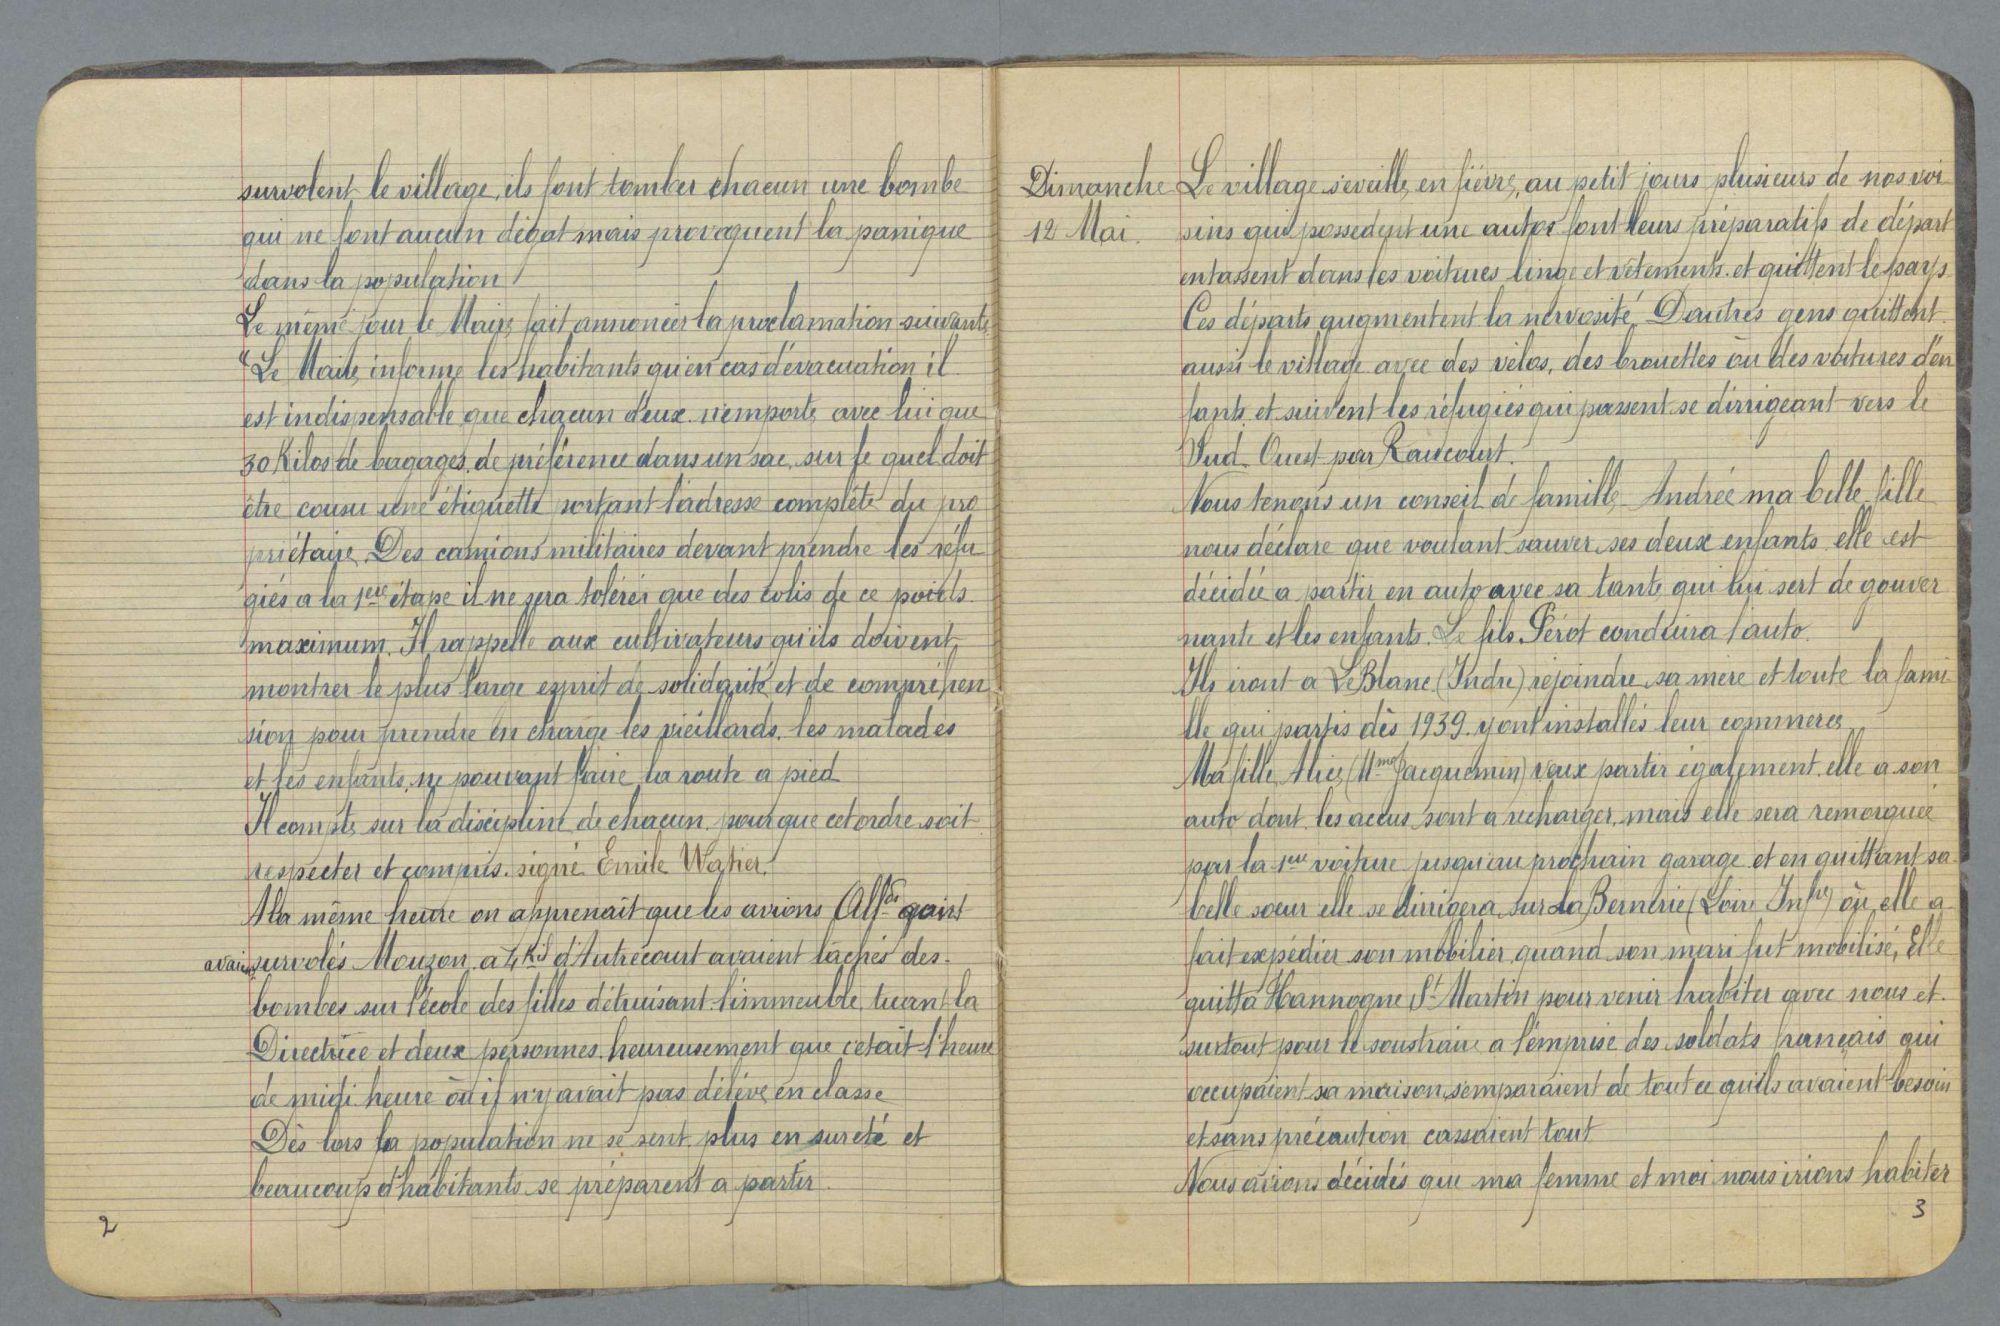 survolent le village, ils font tomber chacun une bombe
qui ne font aucun dégat mais provoquent la panique
dans la population
Le même jour le Maire fait annoncer la proclamation suivante
"Le Maire informe les habitants qu'en cas d'évacuation il
est indispensable que chacun d'eux n'emporte avec lui que
30 Kilos de bagages, de préférence dans un sac, sur le quel doit
être cousu une étiquette portant l'adresse complète du pro
priétaire. Des camions militaires devant prendre les réfu
giés a la 1ere étape il ne sera toléréi que des colis de ce poids
maximum. Il rappelle aux cultivateurs qu'ils doivent
montrer le plus large esprit de solidarité et de compréhen
sion pour prendre en charge les vieillards, les malades
et les enfants, ne pouvant faire la route a pied
Il compte sur la discipline de chacun pour que cet ordre soit
respecter et compris. signé Emile Watier.
A la même heure on apprenait que les avions Allds
avaient survolés Mouzon a 4 Kil d'Autrecourt avaient lâchés des
bombes sur l'école des filles détruisant l'immeuble, tuant la
Directrice et deux personnes, heureusement que c'etait l'heure
de midi heure où il n'y avait pas d'élève en classe
Dès lors la population ne se sent plus en sureté et
beaucoup d'habitants se préparent a partir.
2
Dimanche
12 Mai.
Le village s'eveille en fièvre, au petit jours plusieurs de nos voi
sins qui possedent une autos font leurs préparatifs de départ
entassent dans les voitures linge et vêtements et quittent le pays
Ces départs augmentent la nervosité. D'autres gens quittent
aussi le village avec des vélos, des brouettes ou des voitures d'en
fants et suivent les réfugiés qui passent se dirrigeant vers le
Sud-Ouest par Raucourt.
Nous tenons un conseil de famille Andrée ma belle fille
nous déclare que voulant sauver ses deux enfants elle est
décidée a partir en auto avec sa tante qui lui sert de gouver
nante et les enfants. Le fils Pérot conduira l'auto.
Ils iront a Le Blanc (Indre) rejoindre sa mere et toute la fami
lle qui partis dès 1939 y ont installés leur commerce
Ma fille Alice (Mme Jacquemin) veux partir également elle a son
auto dont les accus sont a recharger, mais elle sera remorquée
par la 1ere voiture jusqu'au prochain garage et en quittant sa
belle sœur elle se dirrigera sur La Bernerie (Loire Infre) où elle a
fait expédier son mobilier quand son mari fut mobilisé, Elle
quitta Hannogne St Martin pour venir habiter avec nous et
surtout pour le soustraire a l'emprise des soldats français qui
occupaient sa maison, s'emparaient de tout ce qu'ils avaient besoin
et sans précaution cassaient tout
Nous avions décidés que ma femme et moi nous irions habiter
3